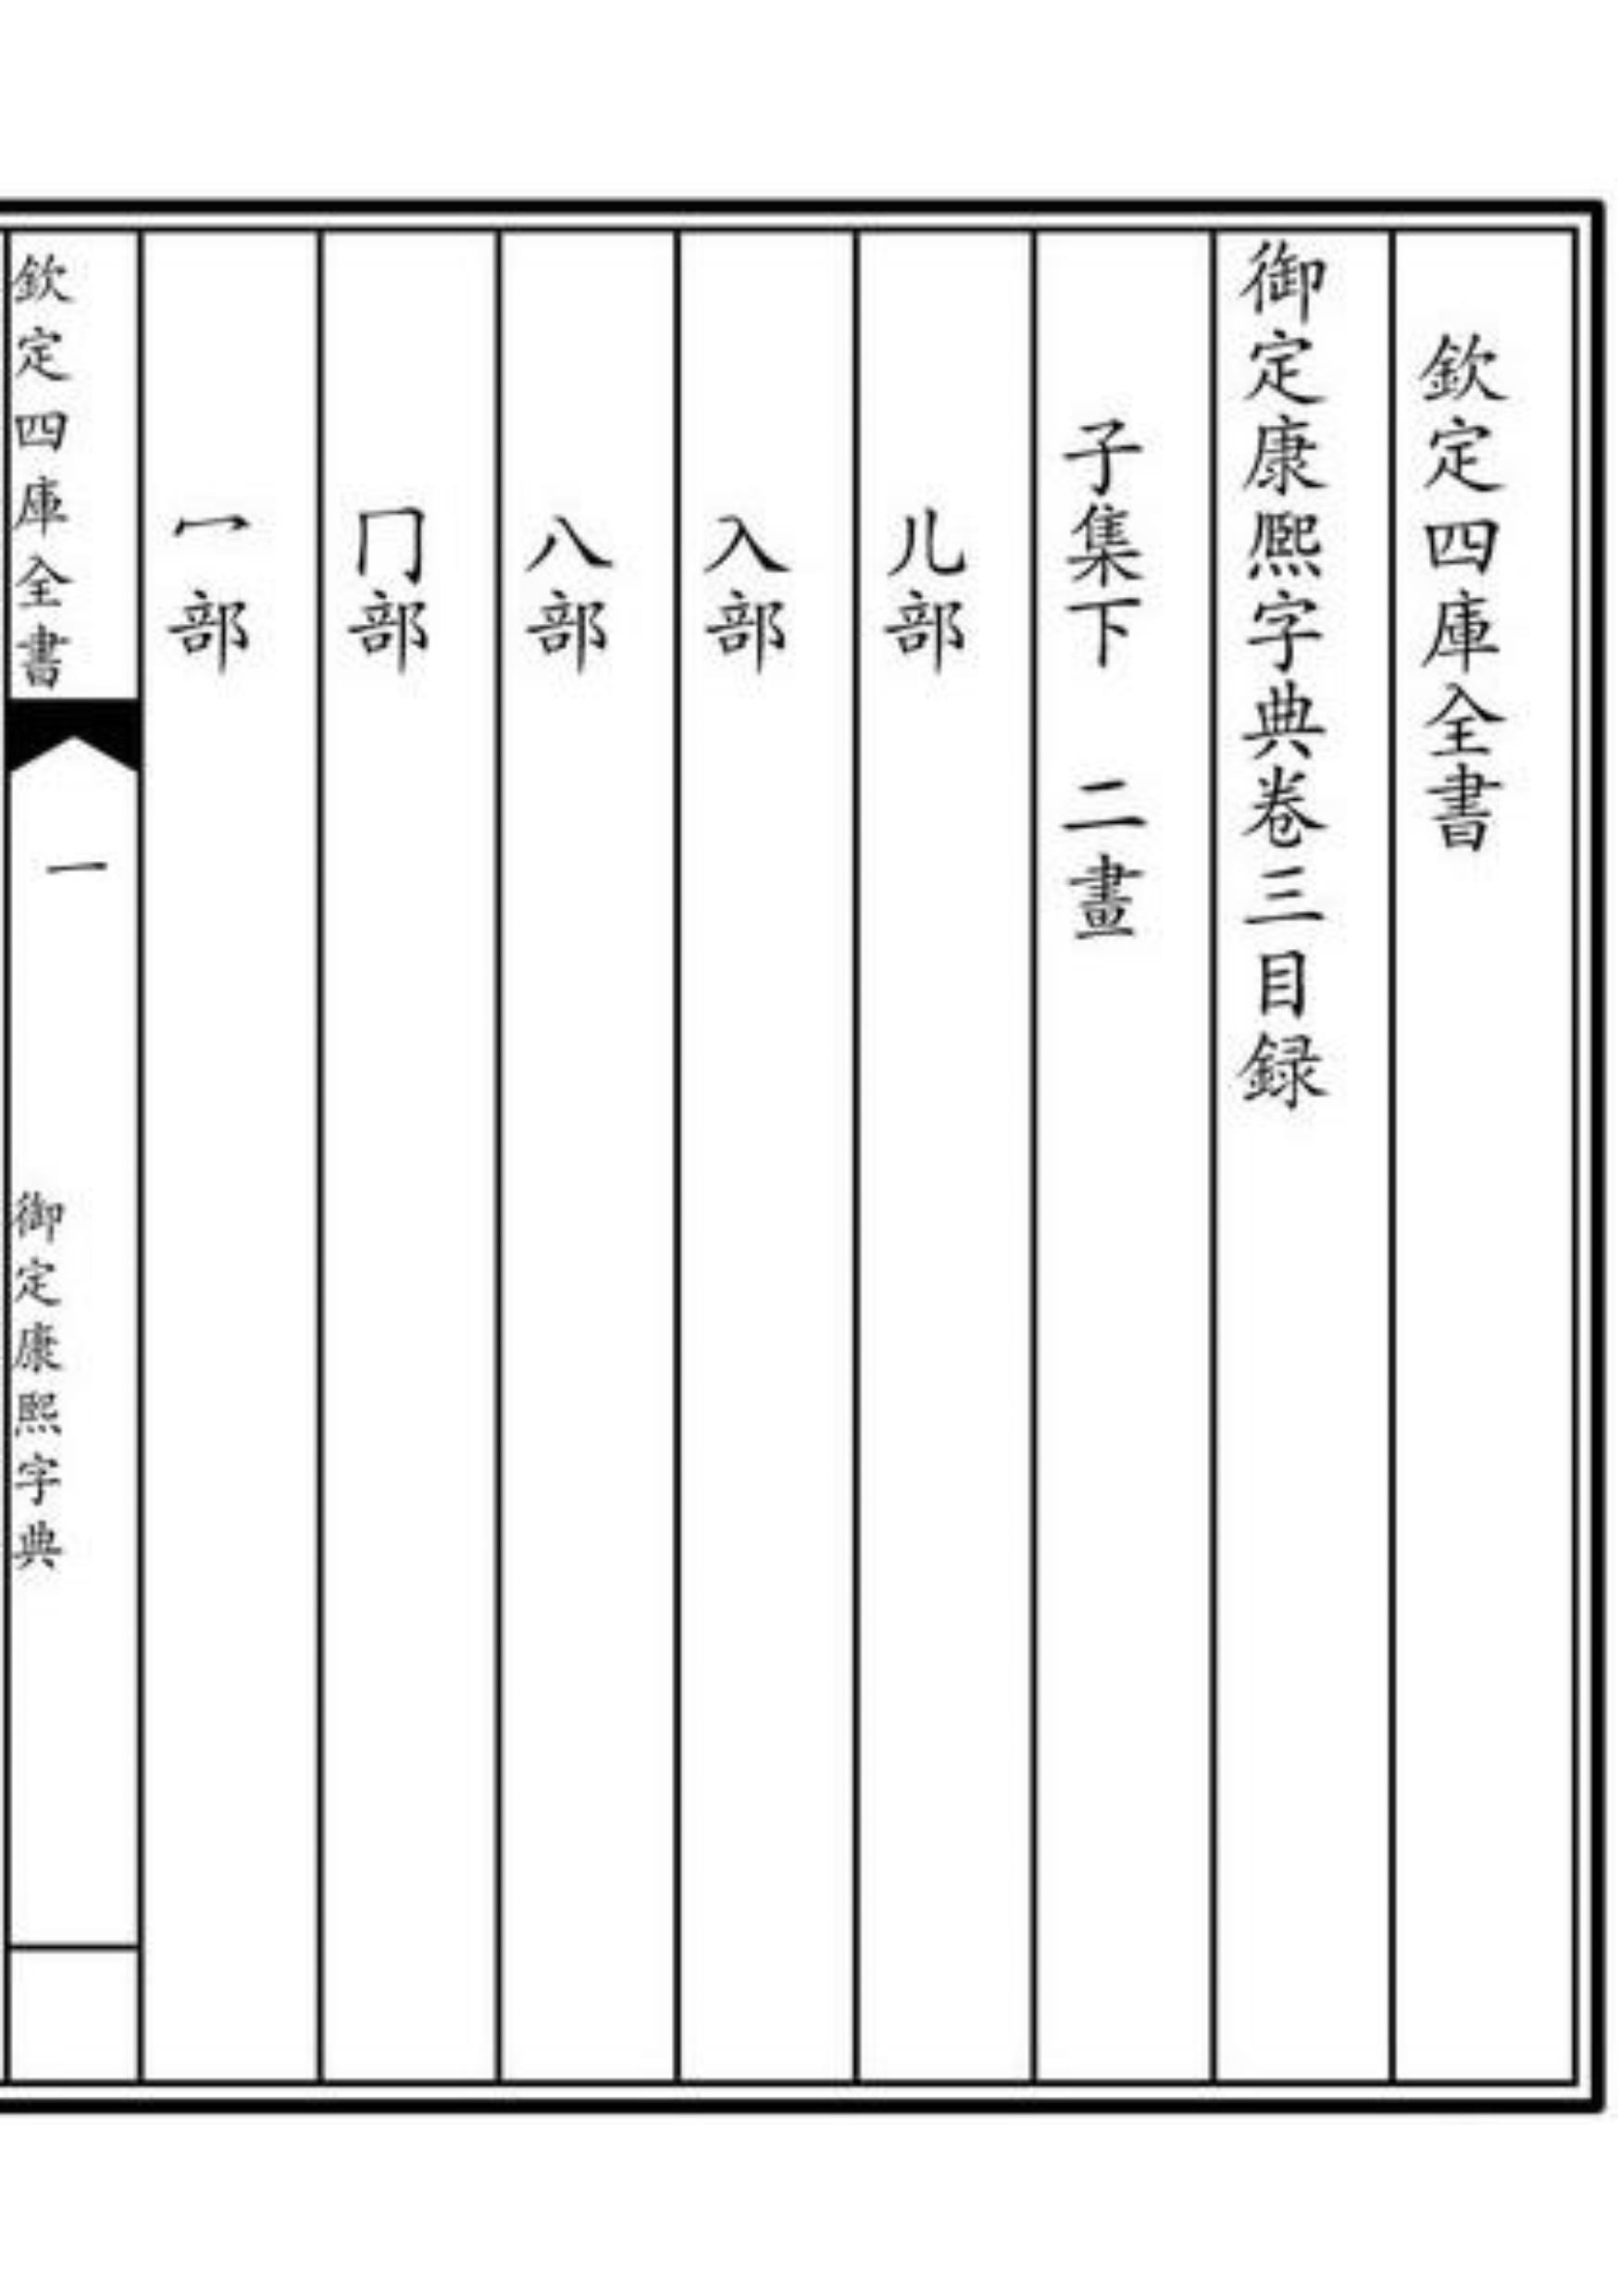 欽定四庫全書
御定康熙字典卷三目録
子集下　二畫
儿部
入部
八部
冂部
冖部
欽定四庫全書
一
御定康熙字典